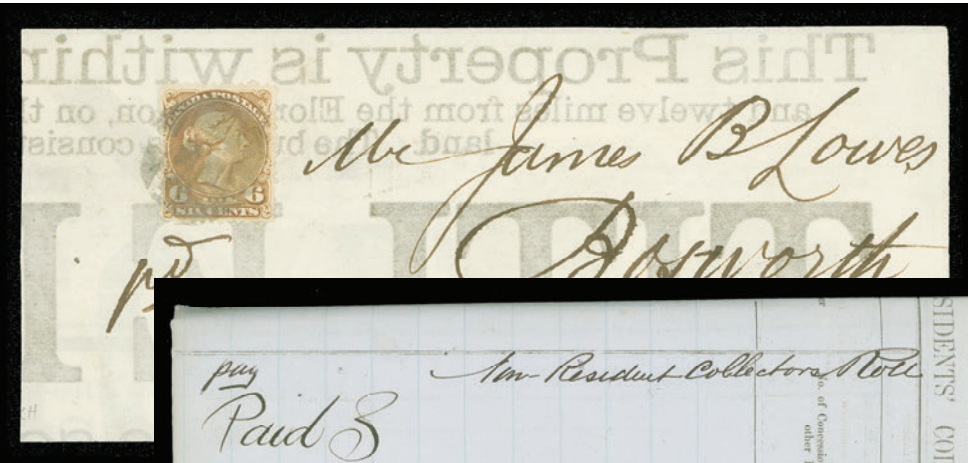 This Property is within
and twelve miles from the Flora on, on t
land. The bu consis
CANADA POSTAGE
6 6
SIX CENTS
Mr James B Lowes
Bosworth
pd
SIDENTS' COL
pay Non-Resident Collectors Roll
Paid 3
No. of Concession
other